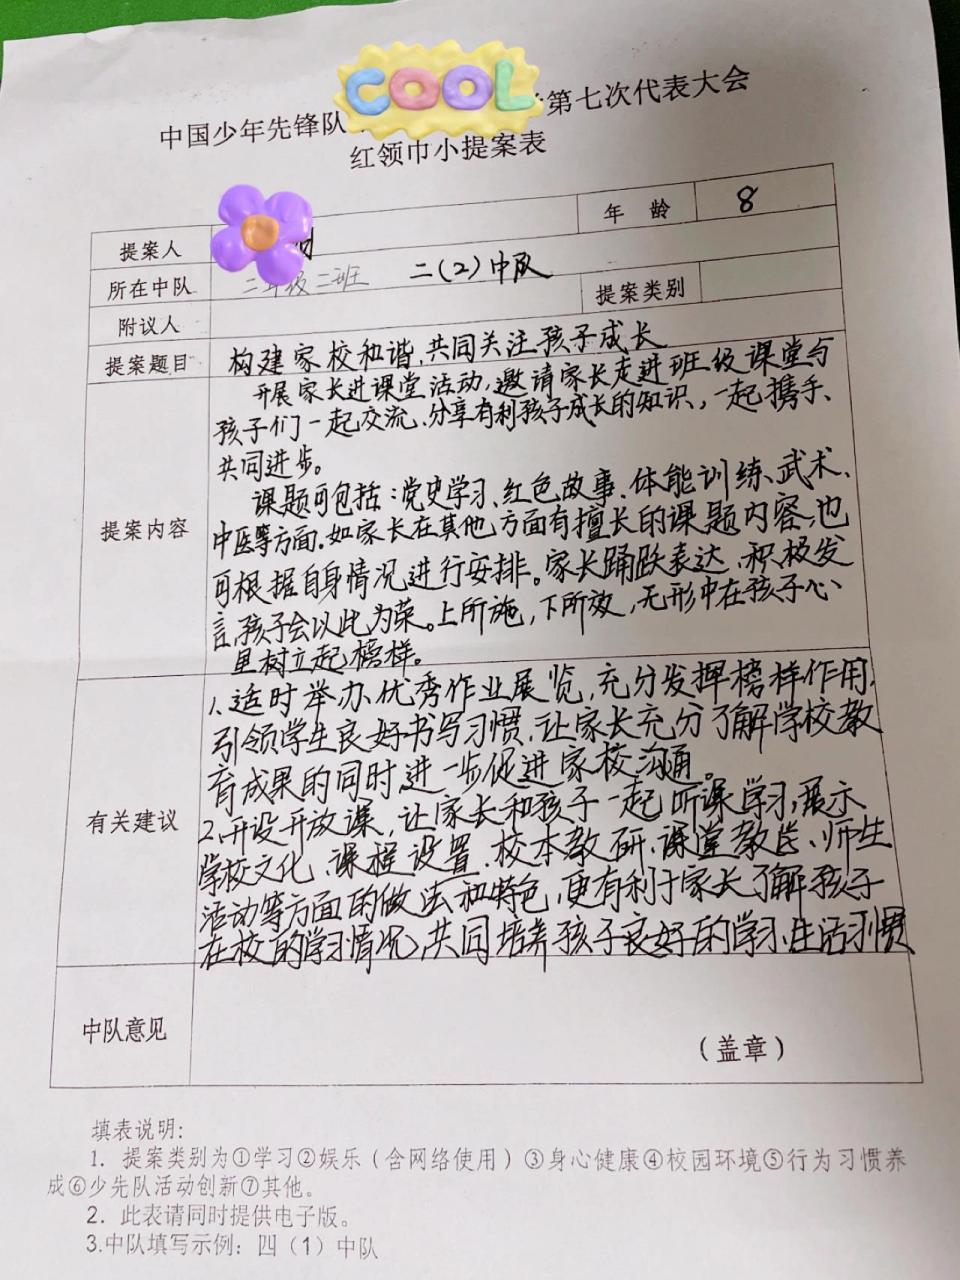 COOL
中国少年先锋队
第七次代表大会
红领巾小提案表
提案人
年 龄
8
所在中队
二年级二班
二(2)中队
提案类别
附议人
提案题目
构建家校和谐,共同关注孩子成长
提案内容
开展家长进课堂活动,邀请家长走进班级课堂与
孩子们一起交流、分享有利孩子成长的知识,一起携手、
共同进步。
课题可包括:党史学习、红色故事、体能训练、武术、
中医等方面.如家长在其他方面有擅长的课题内容,也
可根据自身情况进行安排。家长踊跃表达、积极发
言,孩子会以此为荣。上所施,下所效,无形中在孩子心
里树立起榜样。
有关建议
1、适时举办优秀作业展览,充分发挥榜样作用,
引领学生良好书写习惯,让家长充分了解学校教
育成果的同时,进一步促进家校沟通。
2、开设开放课,让家长和孩子一起听课学习,展示
学校文化、课程设置、校本教研、课堂教学、师生
活动等方面的做法和特色,更有利于家长了解孩子
在校的学习情况,共同培养孩子良好的学习、生活习惯
中队意见
(盖章)
填表说明:
1. 提案类别为①学习②娱乐(含网络使用)③身心健康④校园环境⑤行为习惯养
成⑥少先队活动创新⑦其他。
2. 此表请同时提供电子版。
3.中队填写示例:四(1)中队